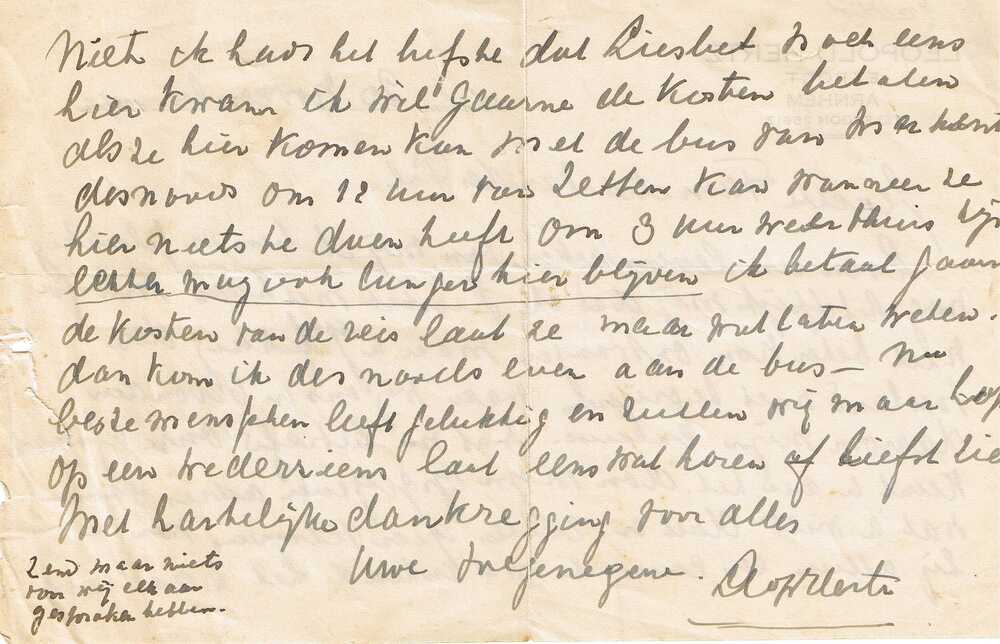 Niet ik had het liefste dat Liesbet nog eens
hier kwam ik wil gaarne de kosten betalen
als ze hier komen kan met de bus van
desnoods om 12 uur van Zetten kan wanneer ze
hier niets te doen heeft om 3 uur weer thuis zijn
echter mag ook langer hier blijven ik betaal gaarn
de kosten van de reis laat ze maar wat laten weten.
dan kom ik desnoods even aan de bus — Nu
beste menschen leeft gelukkig en zullen wij maar hop
op een wederziens laat eens wat horen of liefst zie
Met hartelijke dankzegging voor alles
Uwe toegenegene.
Zend maar niets
voor wij elkaar
gesproken hebben.
LEOPOLD
ARNHEM